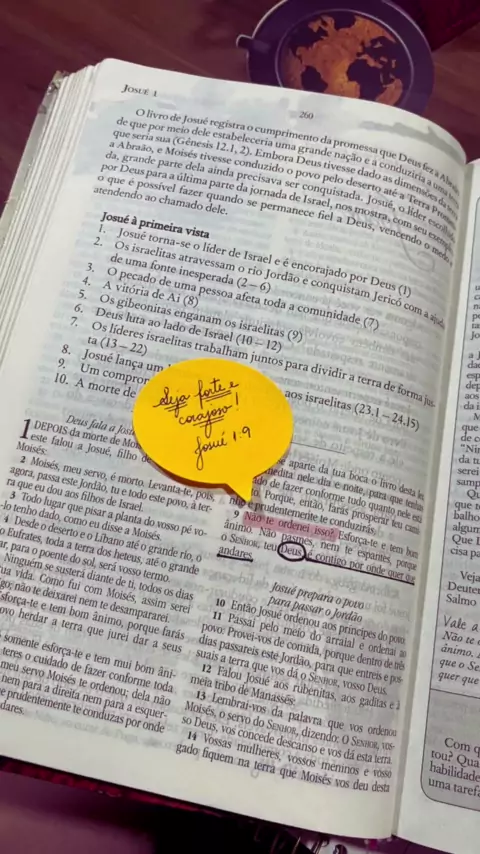 JOSUÉ 1
260
O livro de Josué registra o cumprimento da promessa que Deus fez a Abraão
de que por meio dele estabeleceria uma grande nação e a conduziria a uma terra
que seria sua (Gênesis 12.1, 2). Embora Deus tivesse dado as dimensões da terra
a Abraão, e Moisés tivesse conduzido o povo pelo deserto até a Terra Prometi-
da, grande parte dela ainda precisava ser conquistada. Josué, o líder escolhido
por Deus para a última parte da jornada de Israel, nos mostra, com seu exemplo,
o que é possível fazer quando se permanece fiel a Deus, vencendo o medo e
atendendo ao chamado dele.
Josué à primeira vista
1. Josué torna-se o líder de Israel e é encorajado por Deus (1)
2. Os israelitas atravessam o rio Jordão e conquistam Jericó com a ajuda
de uma fonte inesperada (2–6)
3. O pecado de uma pessoa afeta toda a comunidade (7)
4. A vitória de Ai (8)
5. Os gibeonitas enganam os israelitas (9)
6. Deus luta ao lado de Israel (10–12)
7. Os líderes israelitas trabalham juntos para dividir a terra de forma jus-
ta (13–22)
8. Josué lança um
9. Um compro aos israelitas (23.1–24.15)
10. A morte de
Seja forte e
corajoso!
Josué 1:9
Deus fala a Josu
1 DEPOIS da morte de Moi
este falou a Josué, filho de
Moisés:
2 Moisés, meu servo, é morto. Levanta-te, pois,
agora, passa este Jordão, tu e todo este povo, à ter-
ra que eu dou aos filhos de Israel.
3 Todo lugar que pisar a planta do vosso pé vo-
-lo tenho dado, como eu disse a Moisés.
4 Desde o deserto e o Líbano até o grande rio, o
Eufrates, toda a terra dos heteus, até o grande
ar, para o poente do sol, será vosso termo.
Ninguém se susterá diante de ti, todos os dias
ua vida. Como fui com Moisés, assim serei
go; não te deixarei nem te desampararei.
sforça-te e tem bom ânimo, porque farás
ovo herdar a terra que jurei dar a seus
somente esforça-te e tem mui bom âni-
teres o cuidado de fazer conforme toda
meu servo Moisés te ordenou; dela não
nem para a direita nem para a esquer-
e prudentemente te conduzas por onde
dares.
se aparte da tua boca o livro desta lei
medita nele dia e noite, para que tenhas
do de fazer conforme tudo quanto nele está
Porque, então, farás prosperar teu cami-
nho e prudentemente te conduzirás.
9 Não te ordenei isso? Esforça-te e tem bom
ânimo. Não pasmes, nem te espantes, porque
o SENHOR, teu Deus, é contigo por onde quer que
andares.
Josué prepara o povo
para passar o Jordão
10 Então Josué ordenou aos príncipes do povo:
11 Passai pelo meio do arraial e ordenai ao
povo: Provei-vos de comida, porque dentro de três
dias passareis este Jordão, para que entreis e pos-
suais a terra que vos dá o SENHOR, vosso Deus.
12 Falou Josué aos rubenitas, aos gaditas e à
meia tribo de Manassés:
13 Lembrai-vos da palavra que vos ordenou
Moisés, o servo do SENHOR, dizendo: O SENHOR, vos-
so Deus, vos concede descanso e vos dá esta terra.
14 Vossas mulheres, vossos meninos e vosso
gado fiquem na terra que Moisés vos deu desta
Veja
Deuter
Salmo
Vale a
Não te
ânimo.
que o Se
quer que
Com q
tou? Qua
habilidade
uma taref